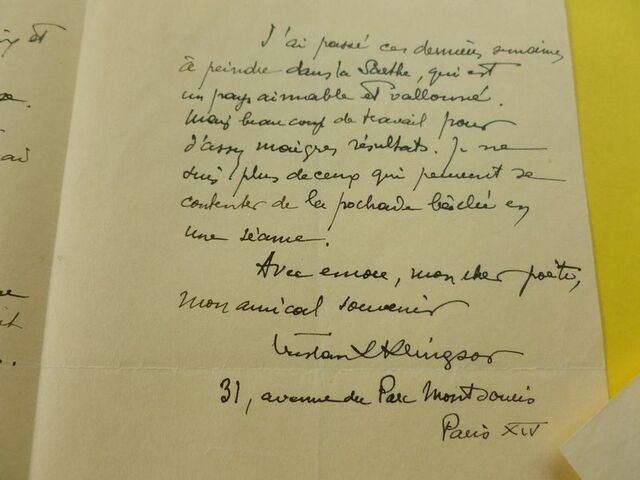 et
J'ai passé ces dernières semaines
à peindre dans la Sarthe, qui est
e.
un pays aimable et vallonné.
Mais beaucoup de travail pour
ai
d'assez maigres résultats. Je ne
suis plus de ceux qui peuvent se
contenter de la pochade bâclée en
une séance.
Avec encore, mon cher poète,
mon amical souvenir
Tristan Klingsor
31, avenue du Parc Montsouris
Paris XIV